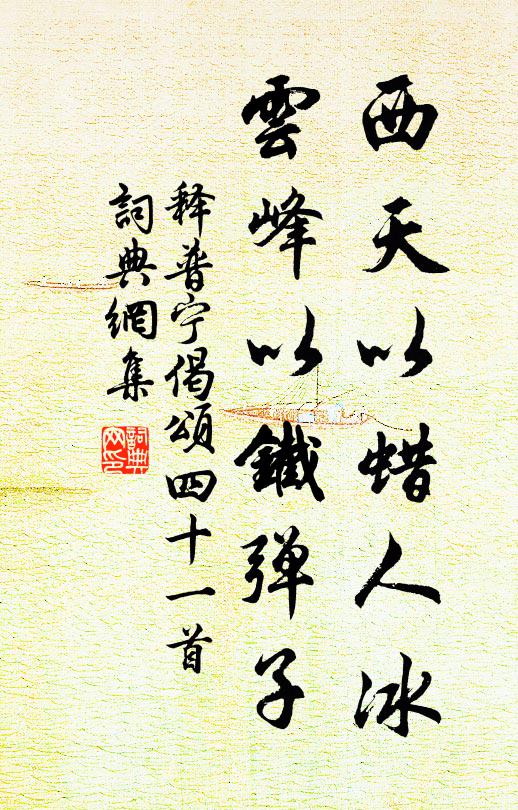 西天以蜡人冰
雲峰以鐵弹子
释普宁偈頌四十一首
詞典網集
詞典網印